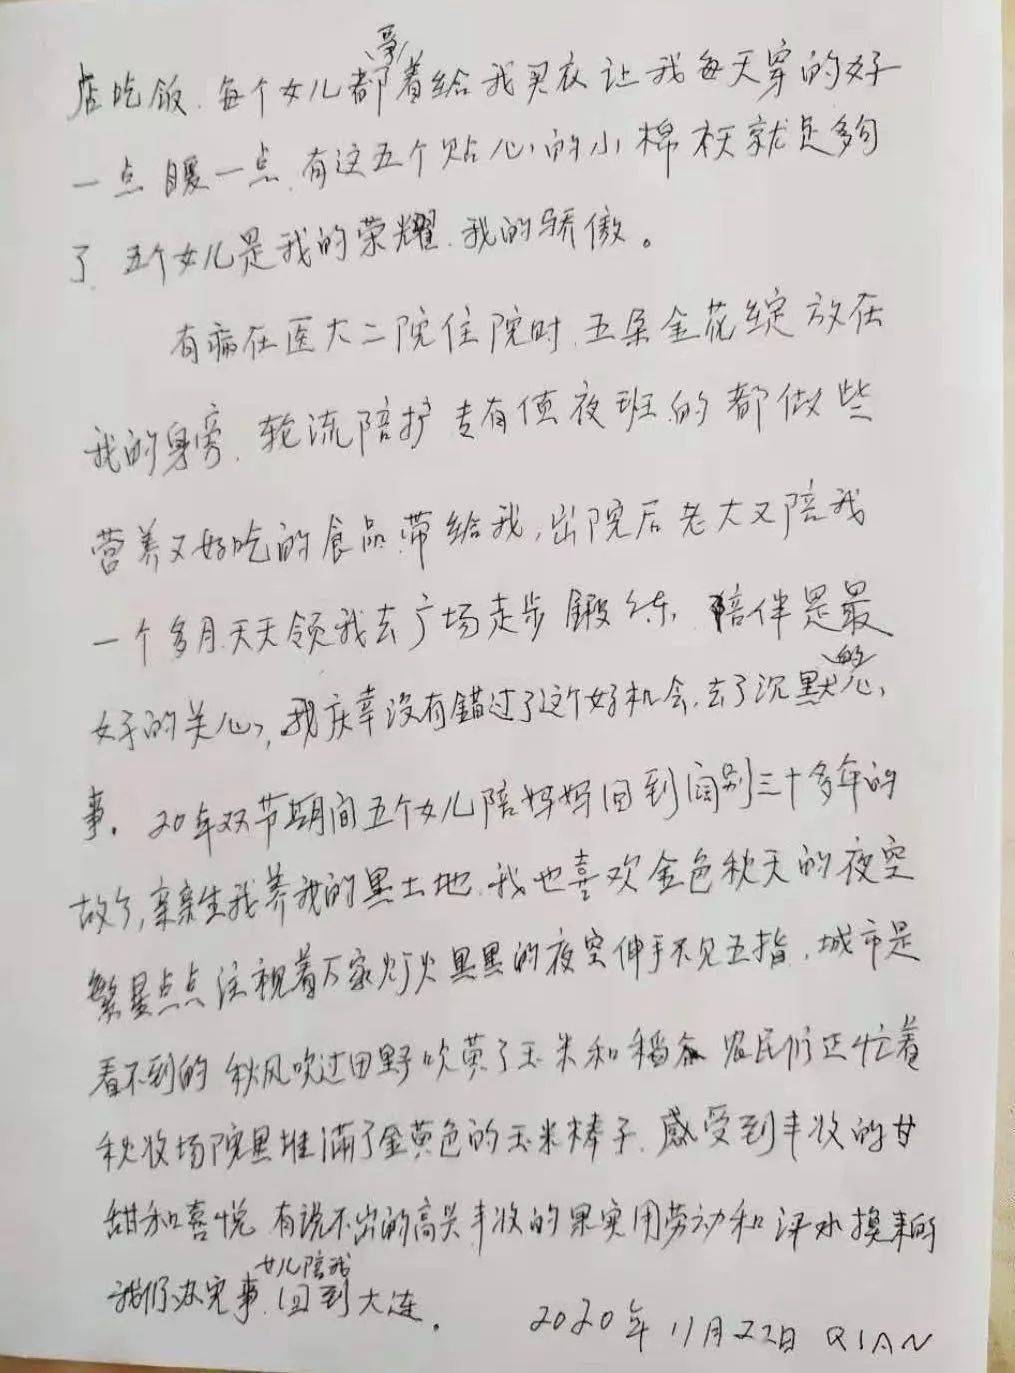 店吃饭.每个女儿都争着给我买衣让我每天穿的好
一点暖一点.有这五个贴心的小棉袄就足够
了.五个女儿是我的荣耀.我的骄傲。
有病在医大二院住院时.五朵金花绽放在
我的身旁.轮流陪护专有值夜班的都做些
营养又好吃的食品带给我,出院后老大又陪我
一个多月.天天领我去广场走步锻练,陪伴是最
好的关心,我庆幸没有错过了这个好机会,去了沉默的心
事。20年双节期间五个女儿陪妈妈回到阔别三十多年的
故乡,亲亲生我养我的黑土地.我也喜欢金色秋天的夜空
繁星点点注视着万家灯火黑黑的夜空伸手不见五指.城市是
看不到的秋风吹过田野吹黄了玉米和稻谷农民们正忙着
秋收场院里堆满了金黄色的玉米棒子.感受到丰收的甘
甜和喜悦有说不出的高兴丰收的果实用劳动和汗水换来的
我们办完事.女儿陪我回到大连。 2020年11月22日QIAN